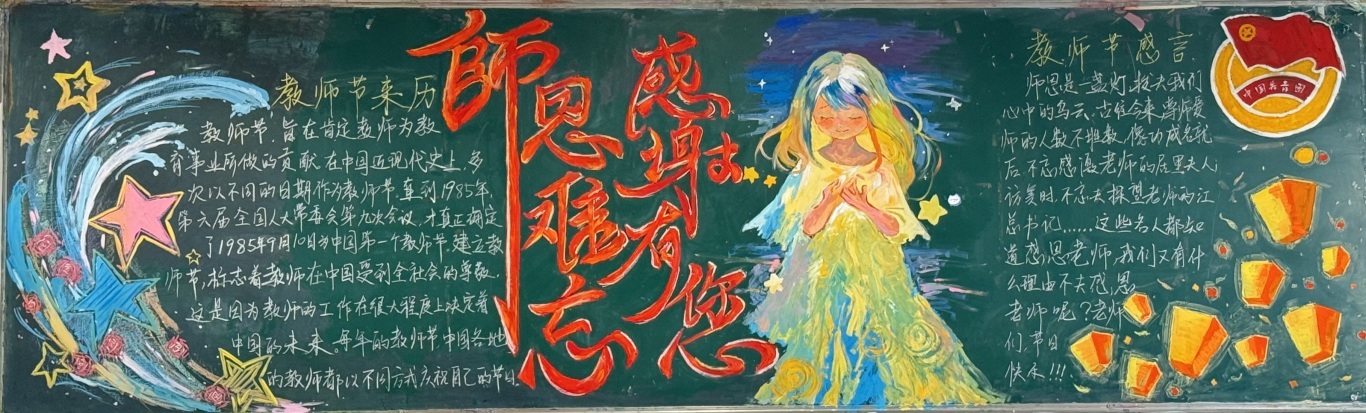 教师节来历
教师节,旨在肯定教师为教
育事业所做的贡献,在中国近现代史上,多
次以不同的日期作为教师节.直到1985年,
第六届全国人大常委会第九次会议,才真正确定
了1985年9月10日为中国第一个教师节.建立教
师节,标志着教师在中国受到全社会的尊敬.
这是因为教师的工作在很大程度上决定着
中国的未来。每年的教师节中国各地
的教师都以不同方式庆祝自己的节日.
師恩难忘
感谢有您
教师节感言
师恩是一盏灯,拨去我们
心中的乌云.古往今来,尊师爱
师的人数不胜数,像功成名就
后不忘感激老师的居里夫人,
访美时不忘去探望老师的江
总书记......这些名人都知
道感恩老师,我们又有什
么理由不去感恩
老师呢?老师
们,节日
快乐!!!
中国共青团